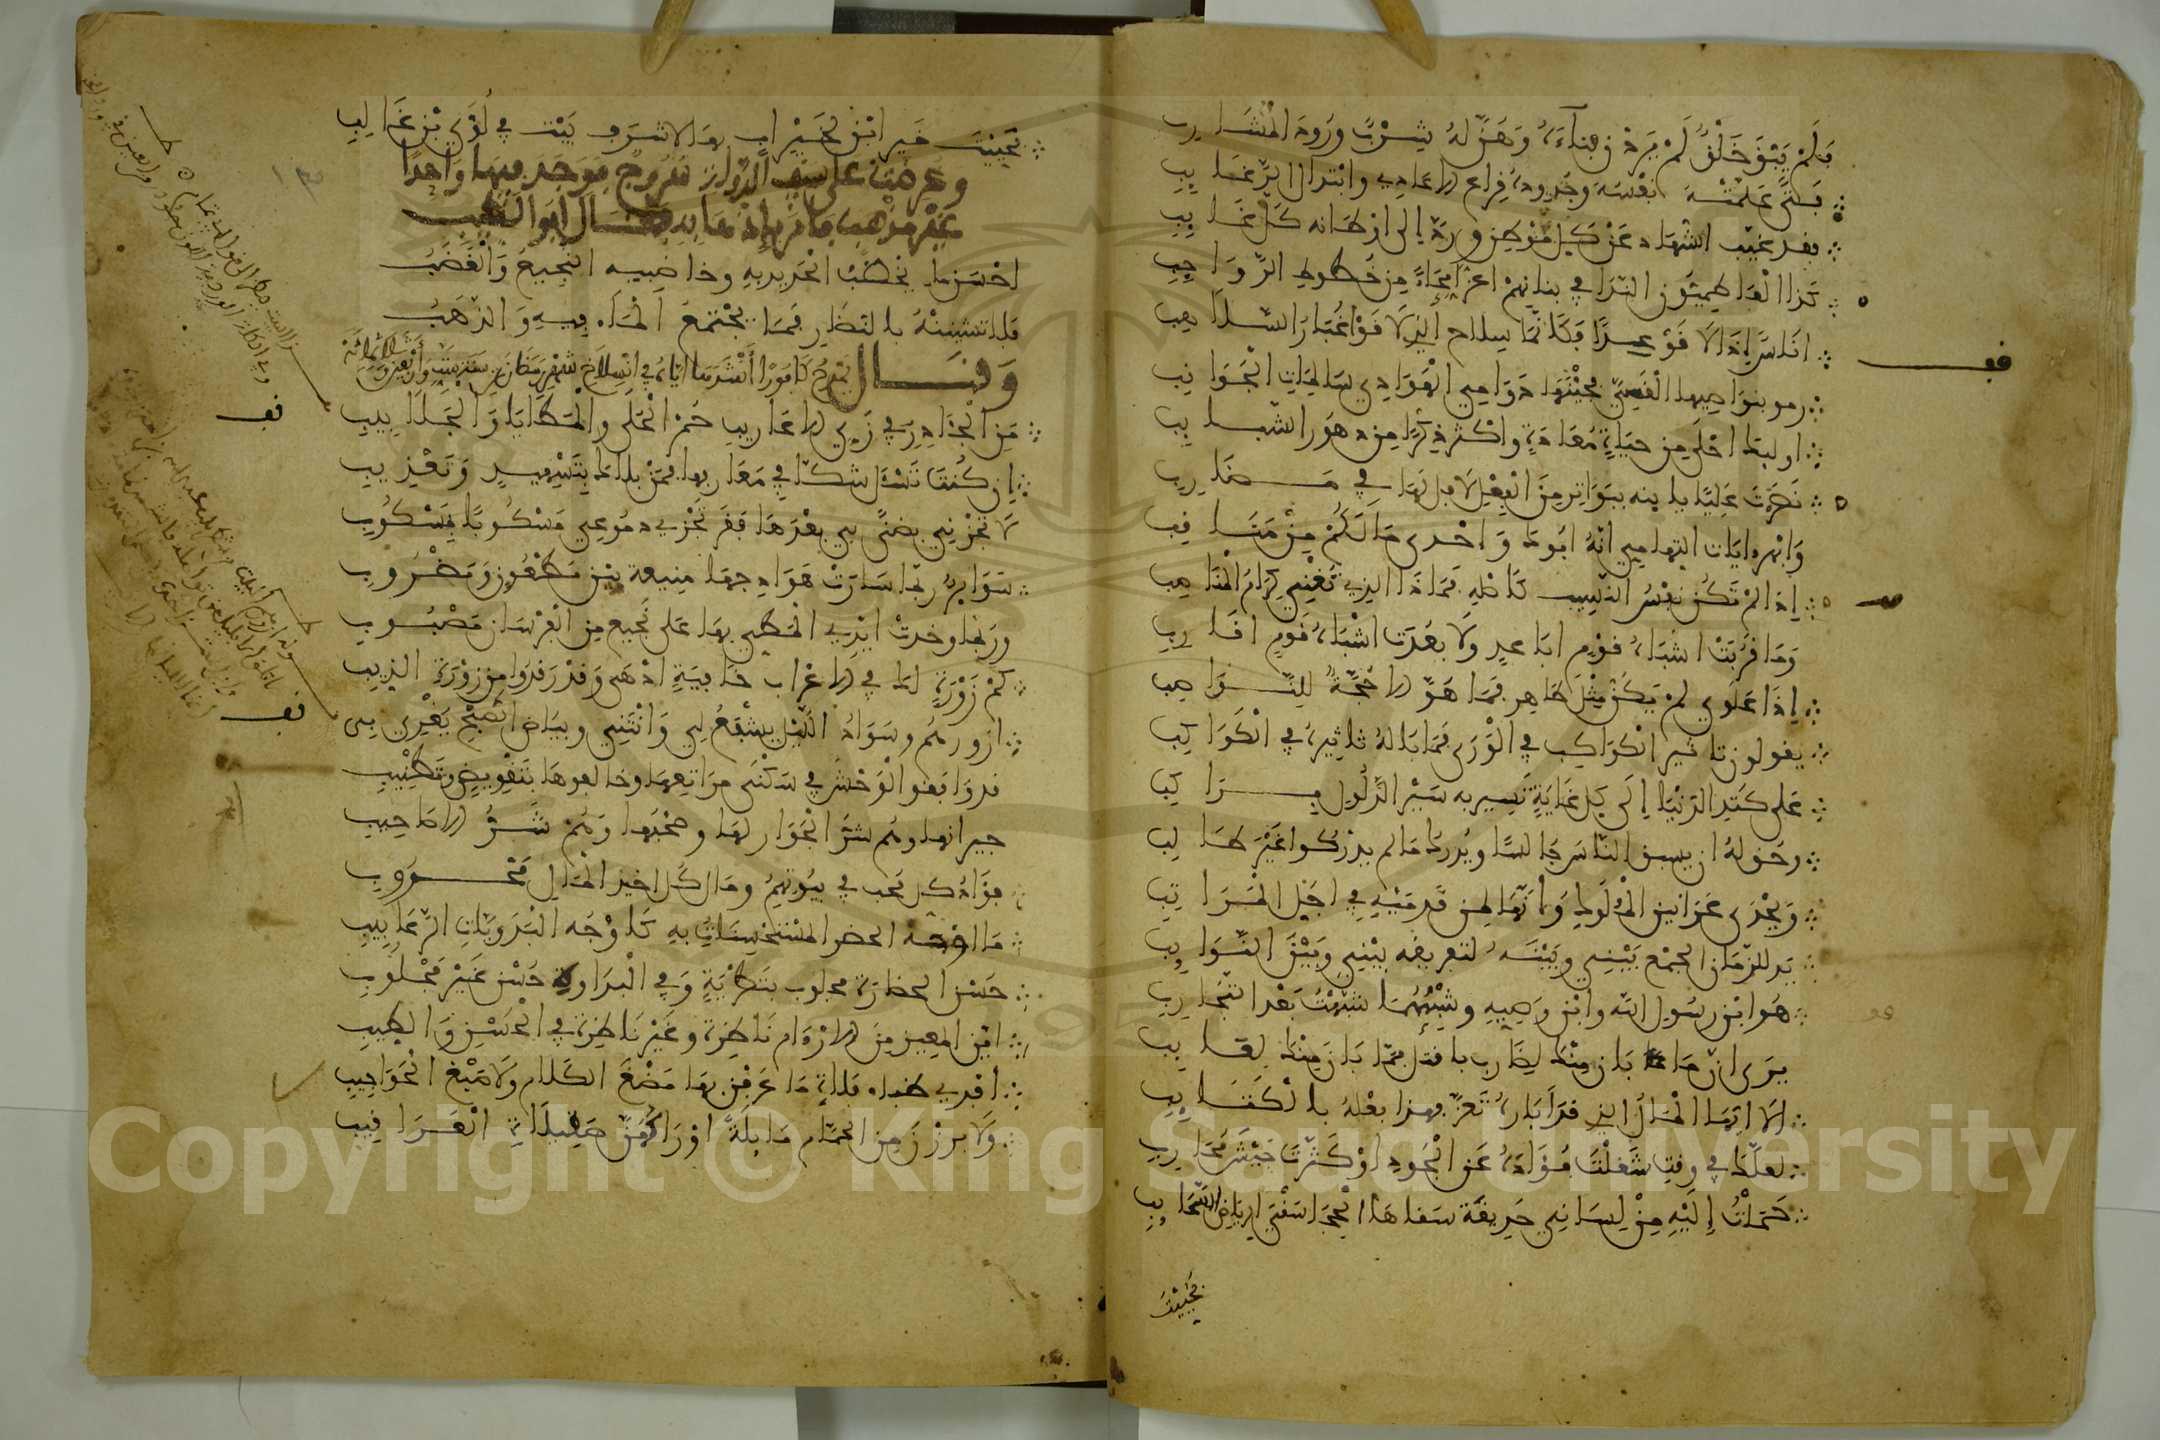 فلم يبق خلق لم يردن فناءه وهن له شرب ورود المشارب
فتى علمته نفسه وجدوده قراع الاعادي وابتذال الرغائب
فقد غيب الشهاد عن كل موطن ورد الى اوطانه كل غائب
كذا الفاطميون الندا في بنانهم اعز امحاء من خطوط الرواجب
اناس اذا لاقوا عدا فكانما سلاح الذي لاقوا غبار السلاهب
رموا بنواصيها القسي فجئنها دوامي الهوادي سالمات الجوانب
اولئك احلى من حياة معادة واكثر ذكرا من دهور الشبائب
نصرت عليا يا بنه ببواتر من الفعل لا فل لها في مضارب
وابهر ايات التهامي انه ابوك واحدى ما لكم من مناقب
اذا لم تكن نفس النسيب كاصله فماذا الذي تغني كرام المناصب
وما قربت اشباه قوم اباعد ولا بعدت اشباه قوم اقارب
اذا علوي لم يكن مثل طاهر فما هو الا حجة للنواصب
يقولون تاثير الكواكب في الورى فما باله تاثيره في الكواكب
على كتد الدنيا الى كل غاية تسير به سير الذلول براكب
وحق له ان يسبق الناس جالسا ويدرك ما لم يدركوا غير طالب
ويحذى عرانين الملوك وانها لمن قدميه في اجل المراتب
يد للزمان الجمع بيني وبينه لتفريقه بيني وبين النوائب
هو ابن رسول الله وابن وصيه وشبههما شبهت بعد التجارب
يرى ان ما ما بان منك لضارب باقتل مما بان منك لعائب
الا ايها المال الذي قد اباده تعز فهذا فعله بالكتائب
لعلك في وقت شغلت فؤاده عن الجود او كثرت جيش محارب
حملت اليه من لساني حديقة سقاها الحجا سقي الرياض السحائب
فحييت
فحييت خير ابن لخير اب بها لاشرف بيت في لؤي بن غالب
وعرضت على سيف الدولة سيوف فوجد فيها واحدا
غير مذهب فامر باذهابه فقال ابو الطيب
احسن ما يخضب الحديد به وخاضبيه النجيع والغضب
فلا تشيننه بالنضار فما يجتمع الماء فيه والذهب
وقال يمدح كافورا انشدها اياه في انسلاخ شهر رمضان سنة ست واربعين وثلاثمائة
من الجاذر في زي الاعاريب حمر الحلى والمطايا والجلابيب
ان كنت تسئل شكا في معارفها فمن بلاك بتسهيد وتعذيب
لا تجزني بضنى بي بعدها بقر تجزي دموعي مسكوبا بمسكوب
سوائر ربما سارت هوادجها منيعة بين مطعون ومضروب
وربما وخدت ايدي المطي بها على نجيع من الفرسان مصبوب
كم زورة لك في الاعراب خافية ادهى وقد رقدوا من زورة الذيب
ازورهم وسواد الليل يشفع لي وانثني وبياض الصبح يغري بي
قد وافقوا الوحش في سكنى مراتعها وخالفوها بتقويض وتطنيب
جيرانها وهم شر الجوار لها وصحبها وهم شر الاصاحيب
فؤاد كل محب في بيوتهم ومال كل اخيذ المال محروب
ما اوجه الحضر المستحسنات به كاوجه البدويات الرعابيب
حسن الحضارة مجلوب بتطرية وفي البداوة حسن غير مجلوب
اين المعيز من الارام ناظرة وغير ناظرة في الحسن والطيب
افدي ظباء فلاة ما عرفن بها مضغ الكلام ولا صبغ الحواجيب
ولا برزن من الحمام مايلة اوراكهن صقيلات العراقيب
قف
قف
قف